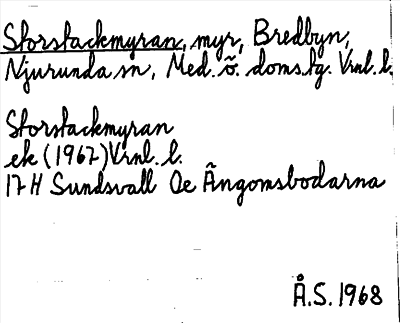 Storstackmyran, myr, Bredbyn,
Njurunda sn, Med. ö. doms.tg. Vrnl. l.
Storstackmyran
ek (1967) Vrnl. l.
17 H Sundsvall Oe Ängomsbodarna
Å.S. 1968